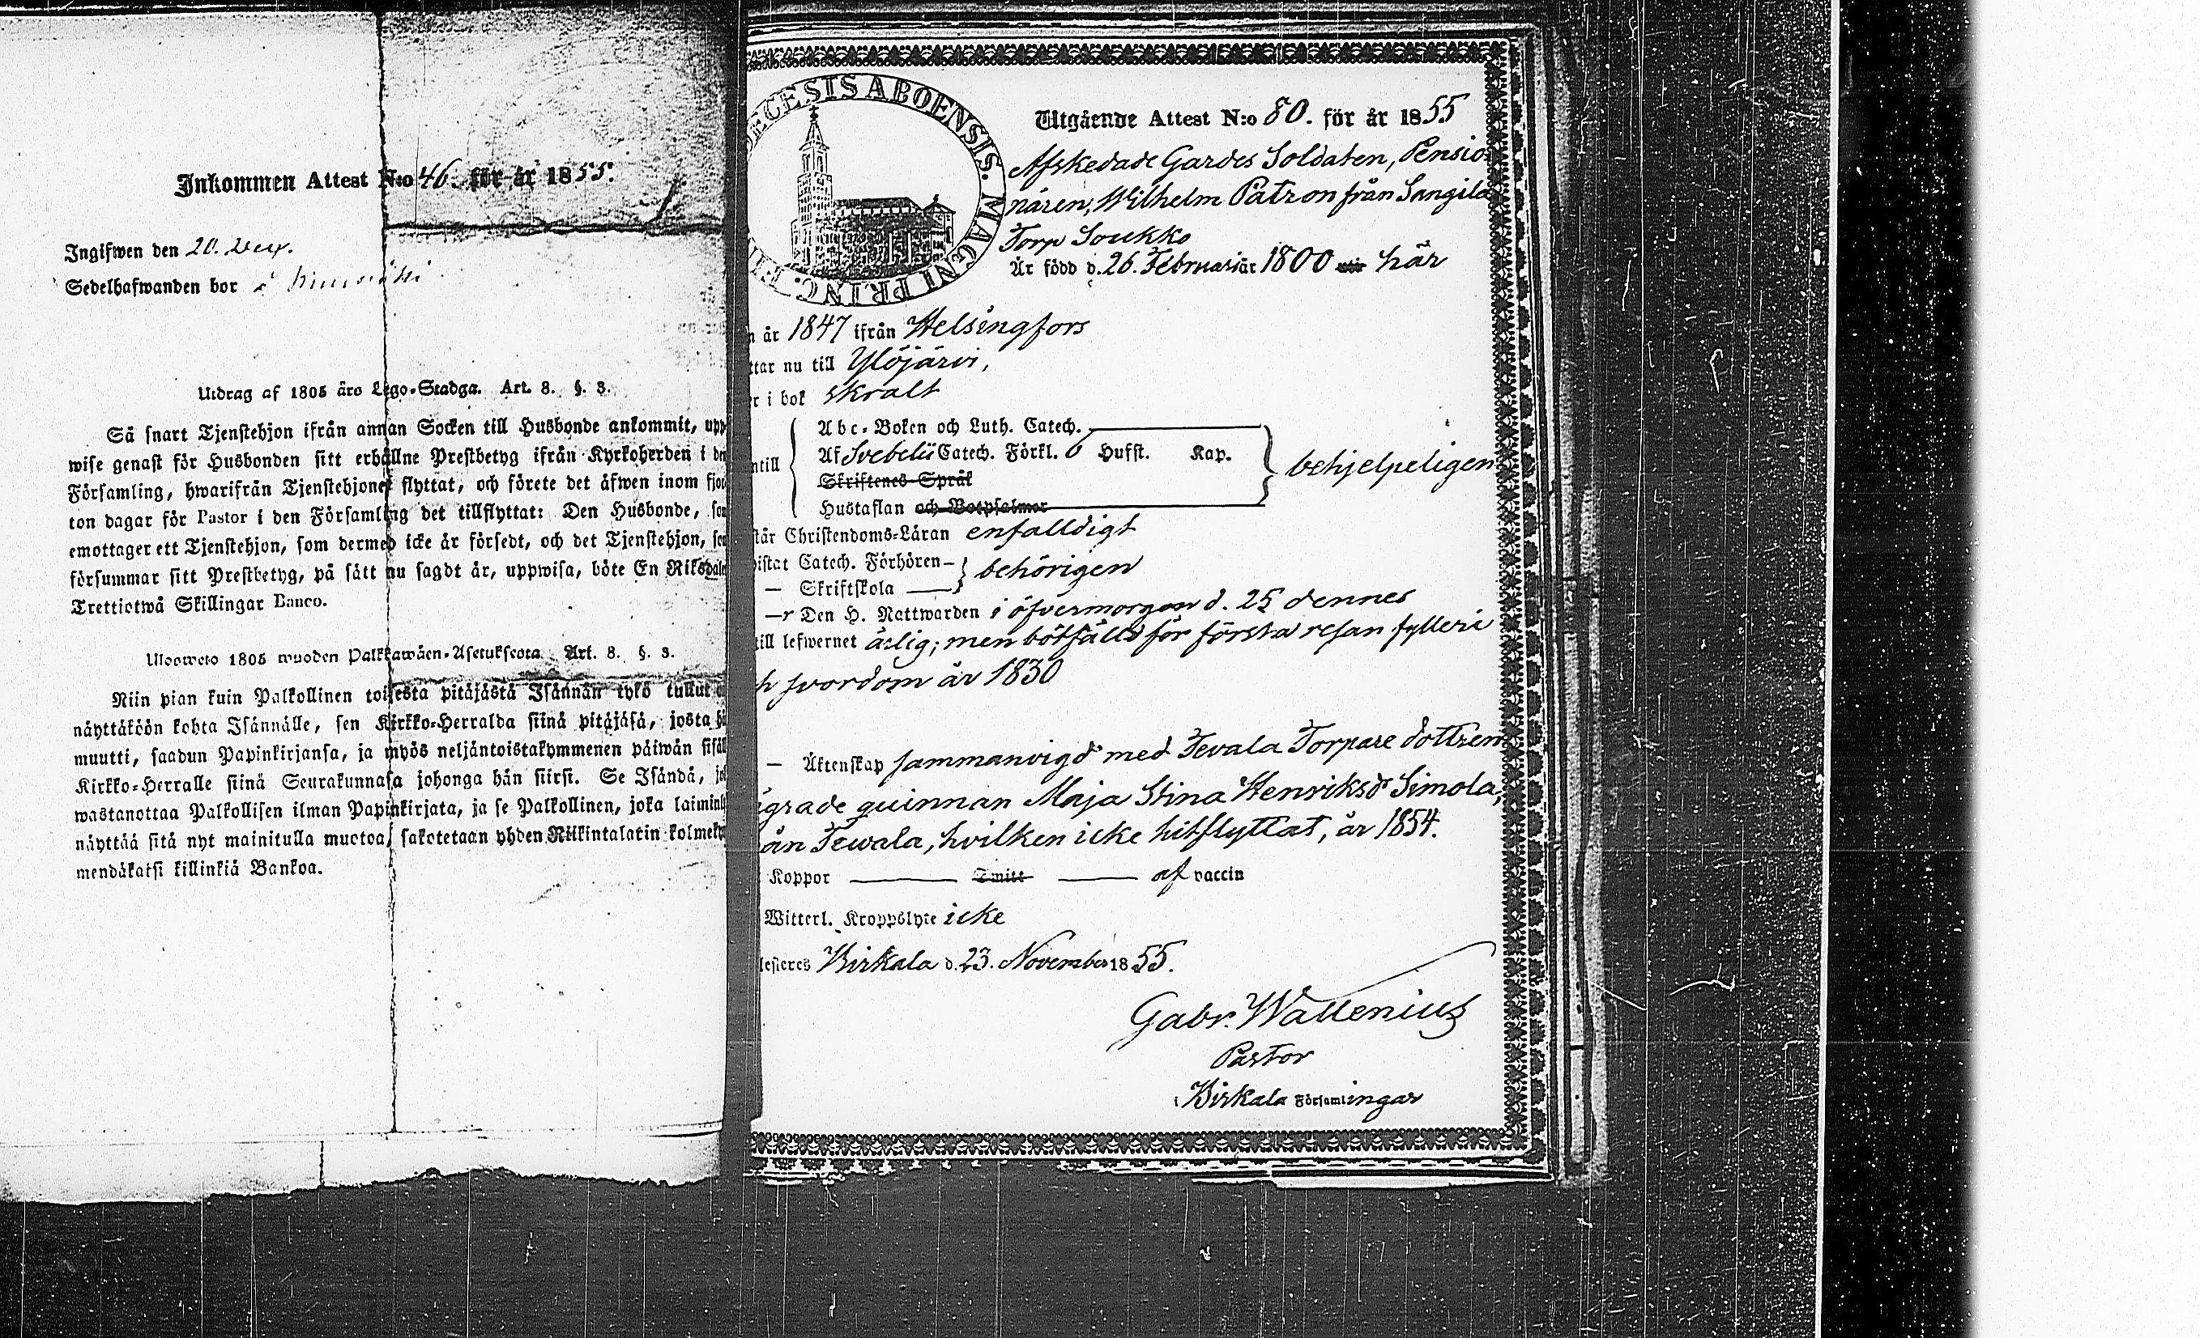 Inkommen Attest N:o 46. för år 1855.
Ingifwen den 20.
Sedelhafwanden bor
Utdrag af 1805 års Lego-Stadga. Art. 8. §. 3.
Så snart Tjenstehjon ifrån annan Socken till Husbonde ankommit, upp
wise genast för Husbonden sitt erhållne Prestbetyg ifrån Kyrkoherden i den
Församling, hwarifrån Tjenstehjonet flyttat, och förete det äfwen inom fjor
ton dagar för Pastor i den Församling det tillflyttat: Den Husbonde, som
emottager ett Tjenstehjon, som dermed icke är försedt, och det Tjenstehjon, som
försummar sitt Prestbetyg, på sätt nu sagdt är, uppwisa, böte En Riksdaler
Trettiotwå Skillingar Banco.
Ulosweto 1805 wuoden Palkkawäen-Asetuksesta Art. 8. §. 3.
Niin pian kuin Palkollinen toisesta pitäjästä Isännän tykö tullut
näyttäköön kohta Isännälle, sen Kirkko-Herralda siinä pitäjäsä, josta hän
muutti, saadun Papinkirjansa, ja myös neljäntoistakymmenen päiwän sisäl
Kirkko-Herralle siinä Seurakunnasa johonga hän siirsi. Se Isändä, jo
wastanottaa Palkollisen ilman Papinkirjata, ja se Palkollinen, joka laiminly
näyttää sitä nyt mainitulla muotoa, sakotetaan yhden Riikintalatin kolmeky
mendäkatsi killinkiä Bankoa.
DIOECESIS ABOENSIS. MAGNI PRINC. FIN
Utgående Attest N:o 80. för år 1855
Afskedade Gardes Soldaten, Pensio
nären, Wilhelm Patron från Sangila
Torp Soukko
Är född d. 26. Februari år 1800 här
n år 1847 ifrån Helsingfors
ttar nu till Ylöjärvi,
r i bok skralt
Abc-Boken och Luth. Catech.
ntill Af Svebelii Catech. Förkl. 6 Hufst. Kap. behjelpeligen
Skriftenes Språk
Hustaflan och Botpsalmer
står Christendoms-Läran enfalldigt
vistat Catech. Förhören behörigen
— Skriftskola
—r Den H. Nattwarden i öfvermorgon d. 25 dennes
till lefwernet ärlig; men bötfälld för första resan fylleri
h hordom år 1830
— Äktenskap sammanvigd med Tevala Torpare dottren
grade quinnan Maja Stina Henriksdr Simola,
ån Tewala, hvilken icke hitflyttat, år 1854.
Koppor — Smitt — af vaccin
Witterl. Kroppslyte icke
testeres Birkala d. 23. November 1855.
Gabr. Wallenius
Pastor
i Birkala Församlingar